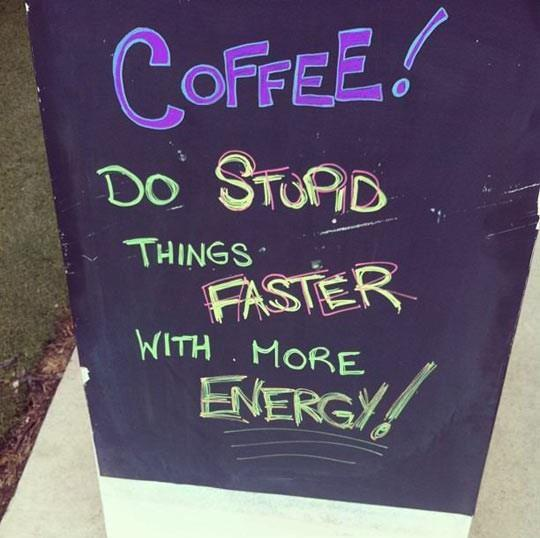 COFFEE!
DO STUPID
THINGS
FASTER
WITH MORE
ENERGY!